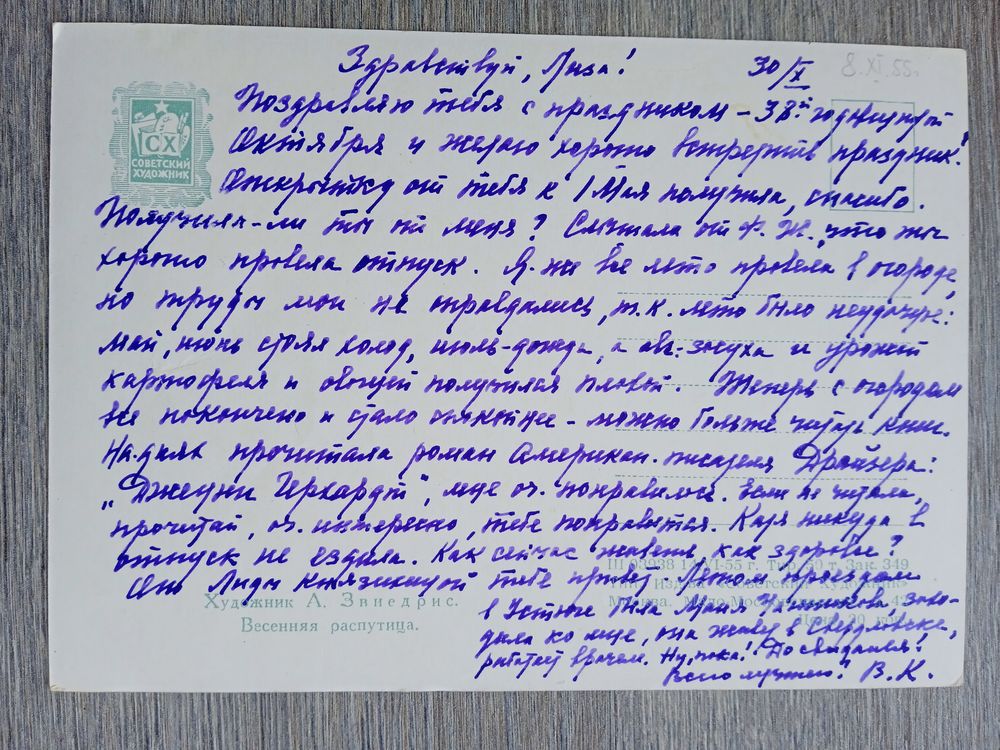 Здравствуй, Лиза! 30/X 8.XI.55г.
Поздравляю тебя с праздником - 38й годовщиной
Октября и желаю хорошо встретить праздник!
СХ
СОВЕТСКИЙ
ХУДОЖНИК
Открытку от тебя к 1 Мая получила, спасибо.
Получила-ли ты от меня? Слышала от Ф. Н., что ты
хорошо провела отпуск. Я-же все лето провела в огороде,
но труды мои не оправдались, т.к. лето было неудачное:
май, июнь стоял холод, июль-дожди, а авг.-засуха и урожай
картофеля и овощей получился плохой. Теперь с огородом
все покончено и стало спокойнее - можно больше читать книг.
На-днях прочитала роман Американ. писателя Драйзера:
"Дженни Герхардт", мне оч. понравился. Если не читала,
прочитай, оч. интересно, тебе понравится. Каля никуда в
отпуск не ездила. Как сейчас живешь, как здоровье?
Ш 03938 14/VI-55 г. Зак. 349
От Лиды Князихиной тебе привет. Летом проездом
Художник А. Звиедрис.
Весенняя распутица.
в Устюге была Маня, захо-
дила ко мне, она живет в Свердловске,
работает врачем. Ну, пока! До свидания!
Всего лучшего! В.К.